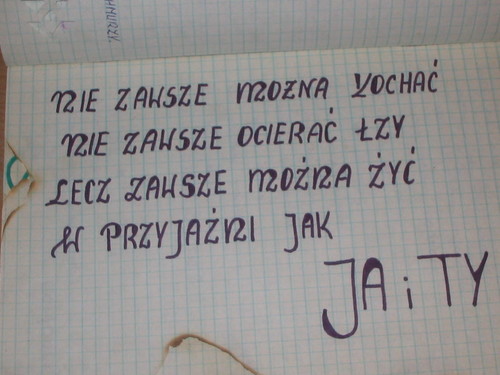 CHMURZY.
NIE ZAWSZE MOZNA KOCHAĆ
NIE ZAWSZE OCIERAĆ ŁZY
LECZ ZAWSZE MOŻNA ŻYĆ
W PRZYJAŹNI JAK
JA i TY